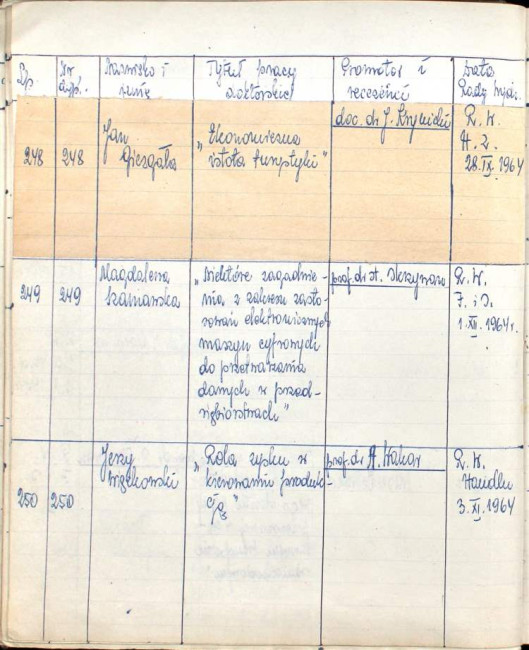 Lp. Nr dypl. Nazwisko i imię Tytuł pracy doktorskiej Promotor i recenzenci Data Rady Wydz.
248 248 Jan Giezgała „Ekonomiczna istota turystyki" doc. dr J. Krynicki R. W. H. Z. 28.IX.1964
249 249 Magdalena „Niektóre zagadnie-
nia z zakresu zasto-
sowań elektronicznych
maszyn cyfrowych
do przetwarzania
danych w przed-
siębiorstwach"
prof. dr St. Skrzywan
R. W.
F. i S.
1.XII.1964r.
250 250 Jerzy „Rola zysku w
kierowaniu produk-
cją"
prof. dr A. Wakar
R. W.
Handlu
3.XI.1964